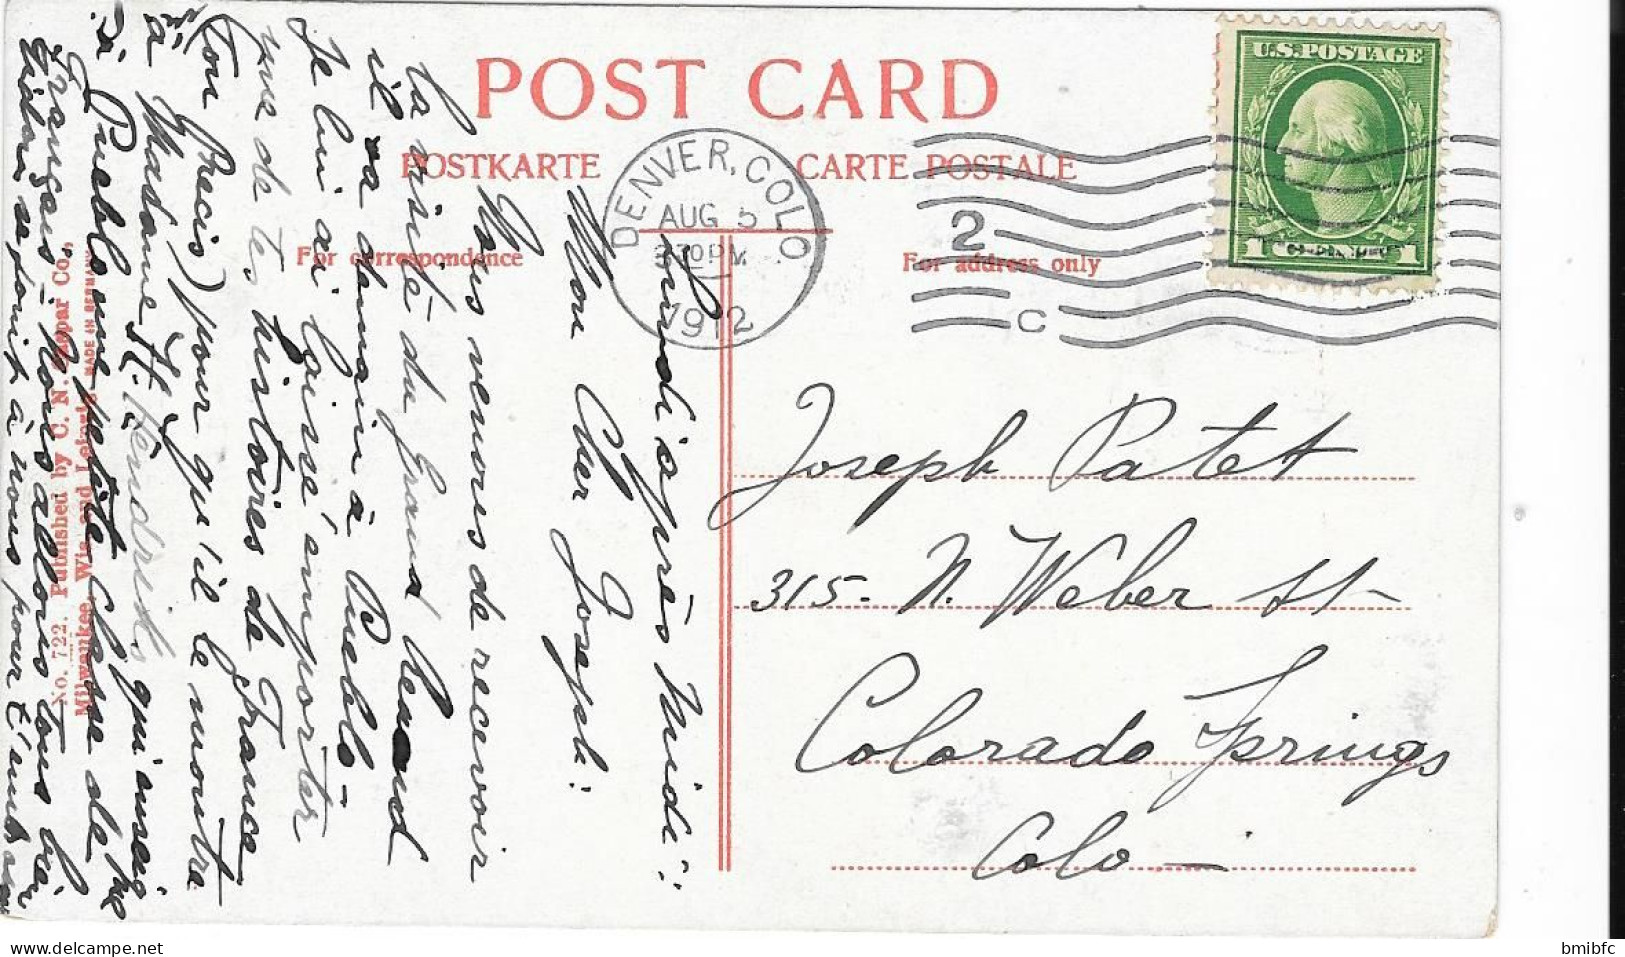 POST CARD
POSTKARTE
CARTE POSTALE
For correspondence
For address only
DENVER, COLO
AUG 5
330 PM
1912
2
C
U.S. POSTAGE
1 CENT 1
Joseph Patet
315- N. Weber St-
Colorado Springs
Colo-
Lundi après Midi:
Mon Cher Joseph:
Nous venons de recevoir
la visite du Grand Léonard
il va demain à Pueblo-
Je lui ai laissé emporter
une de tes histoires de France
(ton Precis) pour qu'il le montra
à Madame H. Hendricks qui enseigne
à Pueblo une petite Classe de
Français - Nous allons tous bien
à nous pour t'embrasser
No. 722. Published by C. N. Caspar Co.,
Milwaukee, Wis. and MADE IN GERMANY
bmibfc